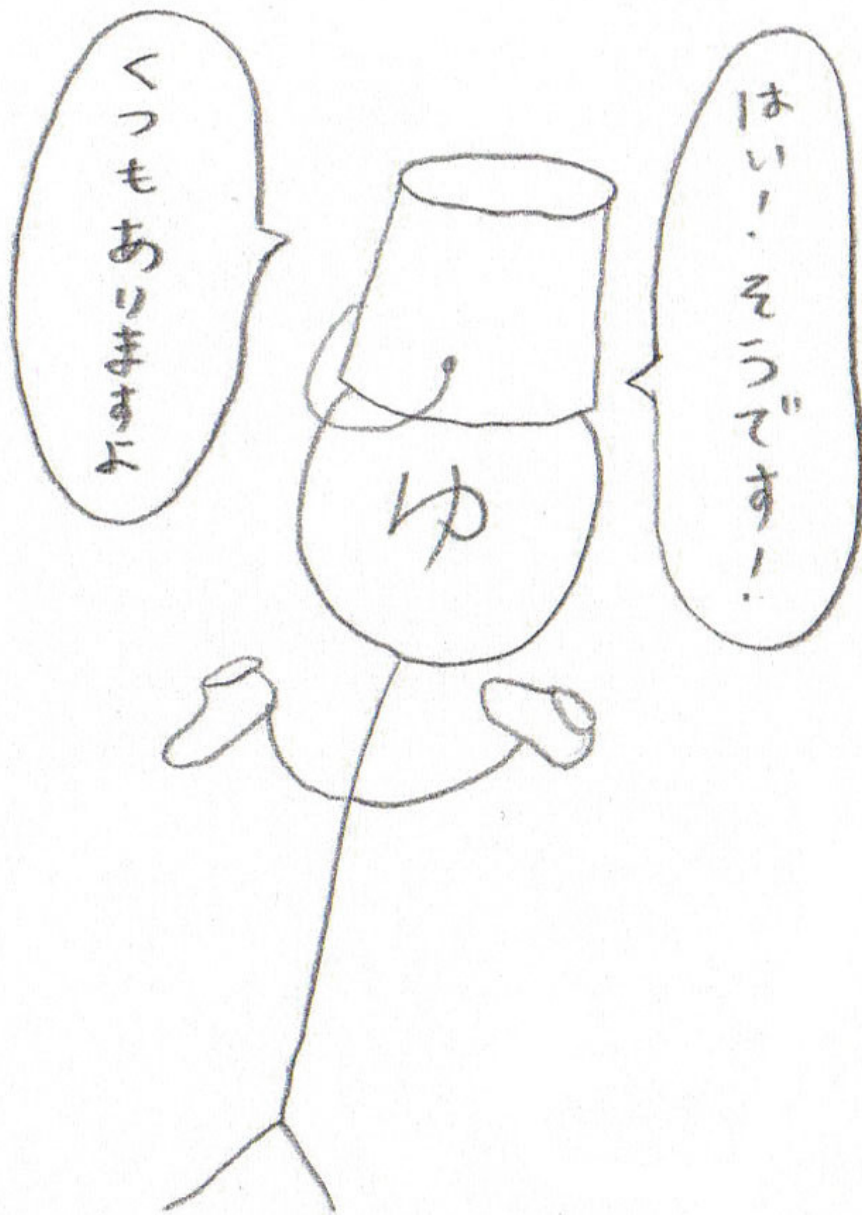 はい！そうです！
くつもありますよ
ゆ